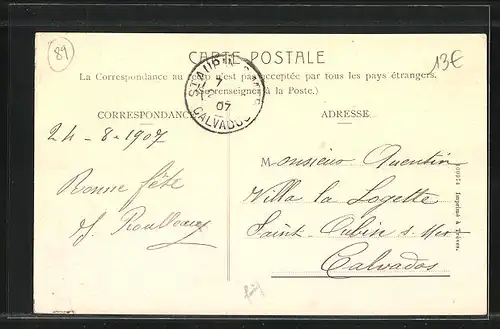 89
13€
CARTE POSTALE
La Correspondance au recto n'est pas acceptée par tous les pays étrangers.
(Se renseigner à la Poste.)
CORRESPONDANCE
ADRESSE
ST AUBIN S MER
07
CALVADOS
24 - 8 - 1907
Bonne fête
Monsieur Quentin
Villa la Logette
Saint-Aubin s. Mer
Calvados
Imprimé à Trèves.